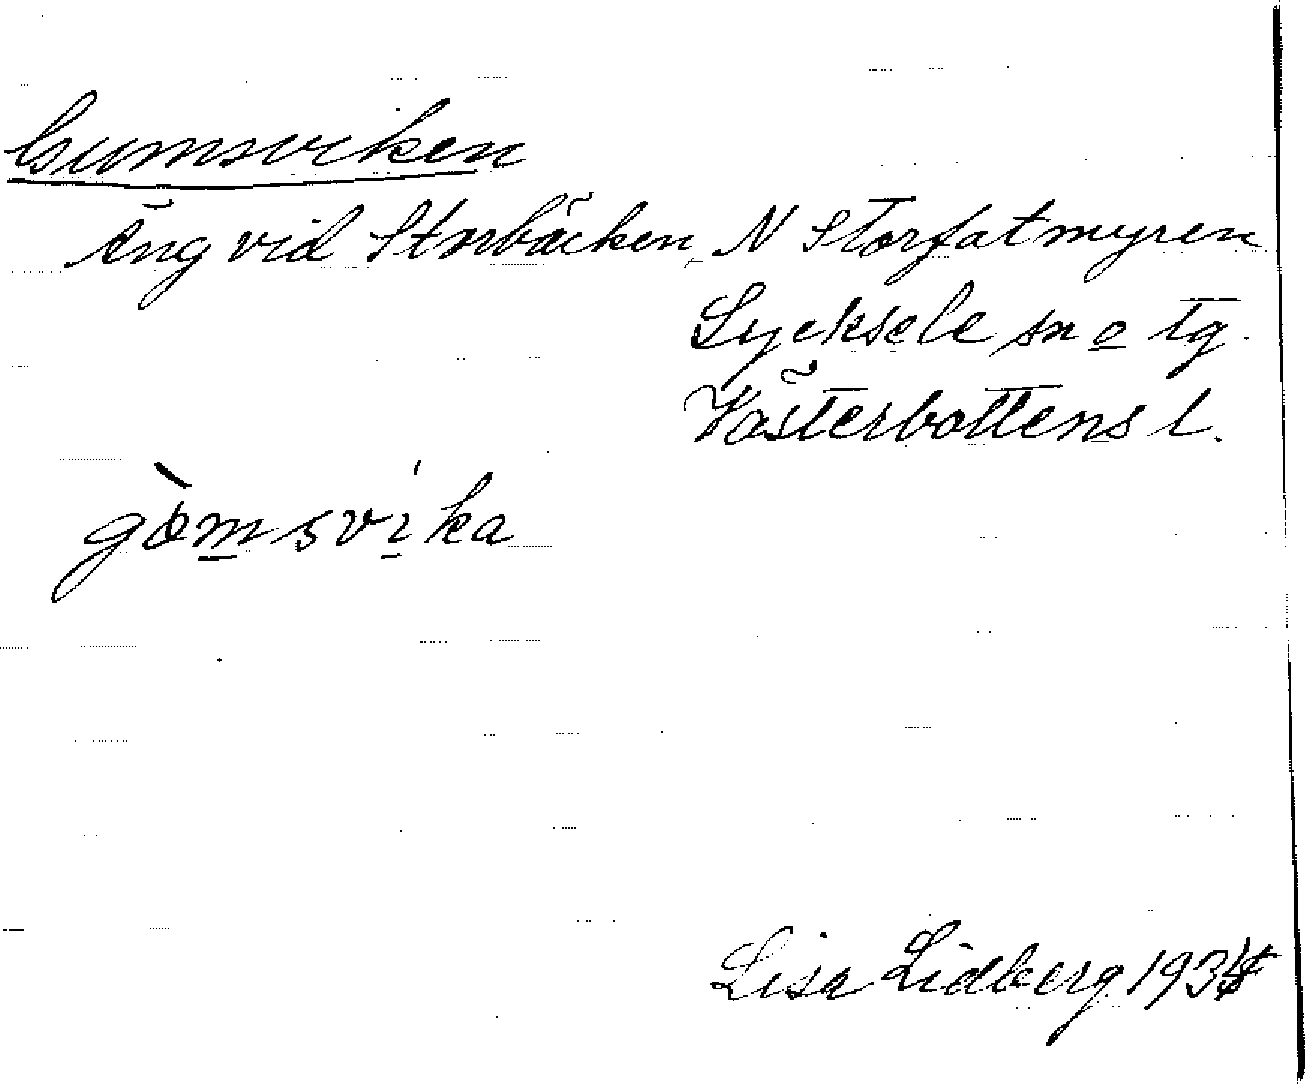 Gumsviken
Äng vid Storbäcken, N Storfatmyren
Lycksele sn o tg.
Västerbottens l.
gòmsvíka
Lisa Lidberg